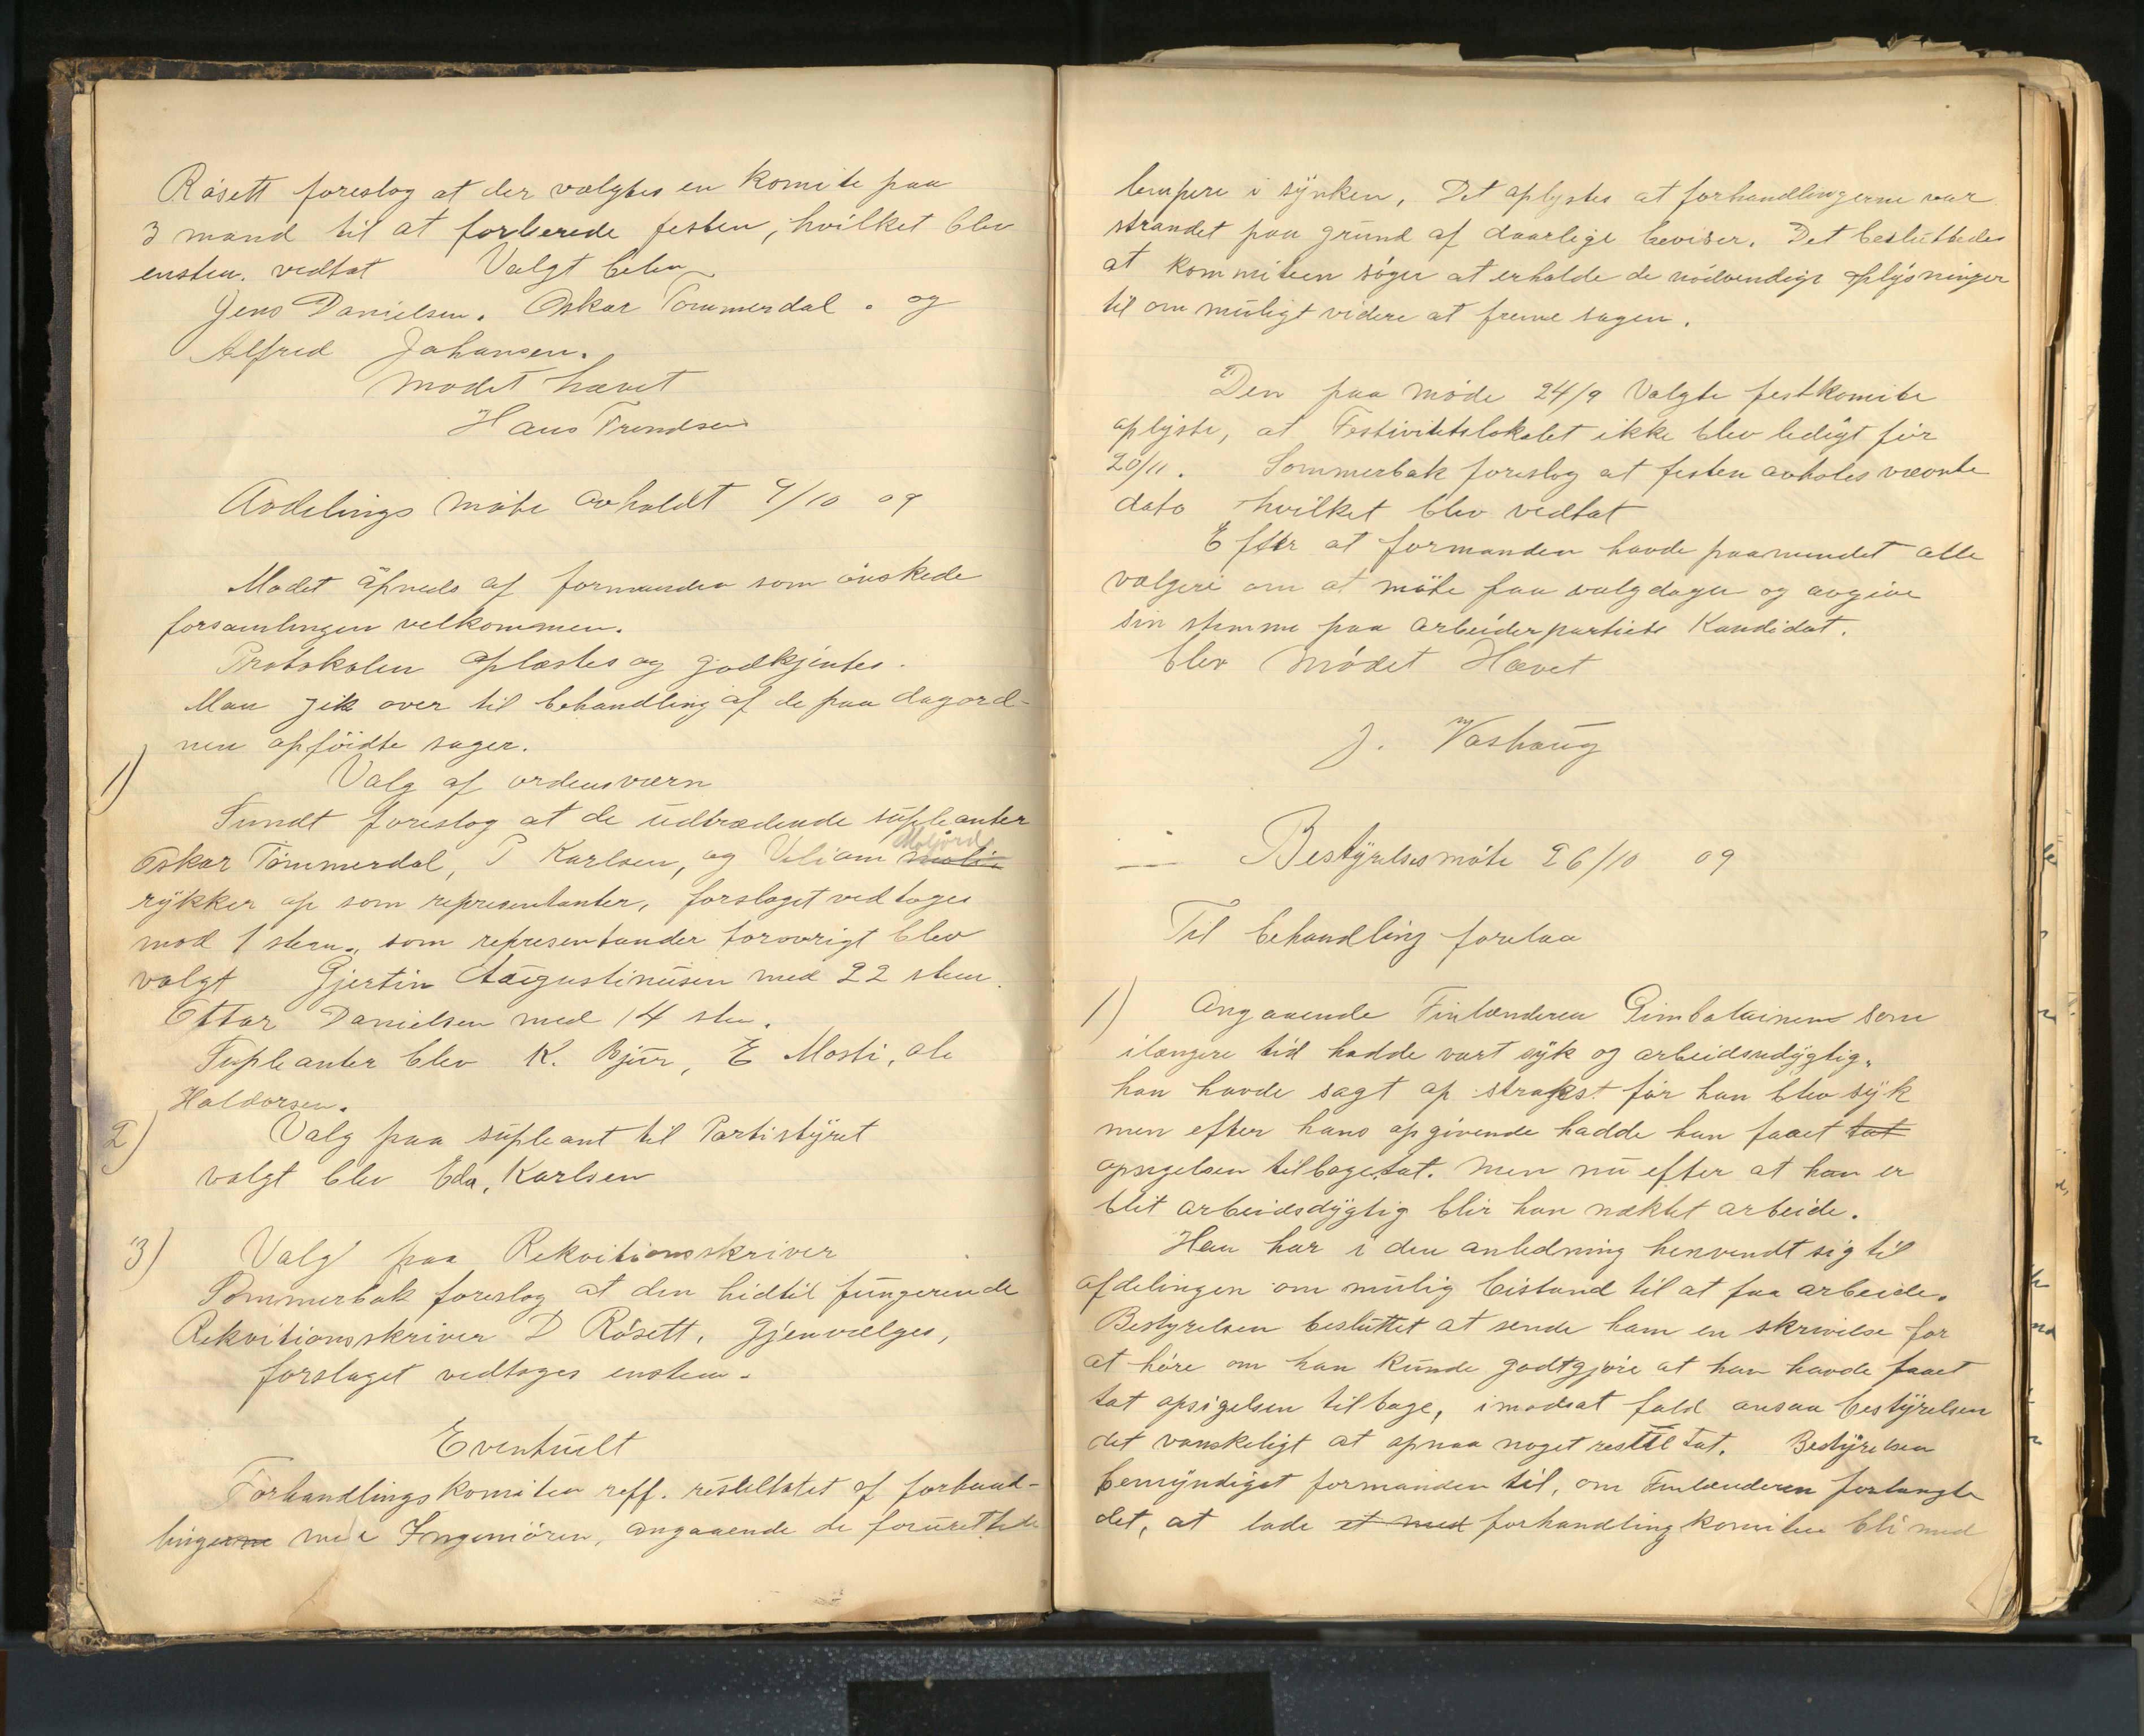 Røsett foreslog at der valgtes en komite paa
3 mand til at forberede festen, hvilket blev
enstem. vedtat Valgt blev
Jens Danielsen. Oskar Tømmerdal. og
Alfred Johansen.
Mødet hævet
Hans Trondsen
Avdelings møte avholdt 9/10 09
Mødet åpneds af formanden som ønskede
forsamlingen velkommen.
Protokolen oplæstes og godkjentes.
Man gik over til behandling af de paa dagord-
nen opføidte sager.
1) Valg af ordensværn
Sundt foreslog at de udtrædende supleanter
Oskar Tømmerdal, P Karlsen, og Viliam Moljord
rykker op som representanter, forslaget vedtoges
mod 1 stem., som representander forøvrigt blev
valgt Gjertin Augustinusen med 22 stem.
Ottar Danielsen med 14 stm.
Supleanter blev K. Bjur, E Mosti, ole
Haldorsen.
2) Valg paa supleant til Partistyret
valgt blev Edv. Karlsen
3) Valg paa Rekvitionsskriver
Sommerbak foreslog at den hidtil fungerende
Rekvitionsskriver D Røsett, gjenvælges,
forslaget vedtoges enstem.
Eventuelt
Forhandlingskomiteen reff. resultatet af forhand-
lingerne med Ingeniøren, angaaende de forurettede
tempere i synken, Det oplystes at forhandlingerne var
strandet paa grund af daarlige beviser. Det besluttedes
at kommiteen søger at erholde de nødvendige oplysninger
til om muligt videre at freme sagen.
Den paa møde 24/9 Valgte festkomite
oplyste, at Festivitetslokalet ikke blev ledigt før
20/11. Sommerbak foreslog at festen avholdes nævnte
dato hvilket blev vedtat
Efter at formanden havde paamindet alle
vælgere om at møte paa valgdagen og avgive
sin stemme paa arbeiderpartiets Kandidat.
blev Mødet Hævet
J. Vashaug
Bestyrelsesmøte 26/10 09
Til behandling forelaa
1) Angaaende Finlænderen Pimbalainen som
ilængere tid hadde vært syk og arbeidsudygtig.
han havde sagt op strakst før han blev syk
men efter hans opgivende hadde han faaet tat
opsigelsen tilbage tat. Men nu efter at han er
blit arbeidsdygtig blir han næktet arbeide.
Han har i den anledning henvendt sig til
afdelingen om mulig bistand til at faa arbeide.
Bestyrelsen besluttet at sende ham en skrivelse for
at høre om han kunde godtgjøre at han havde faaet
tat opsigelsen tilbage, i modsat fald ansaa bestyrelsen
det vanskeligt at opnaa noget resultat. Bestyrelsen
bemyndiget formanden til, om Finlænderen forlangte
det, at lade et med forhandlingkomiteen bli med